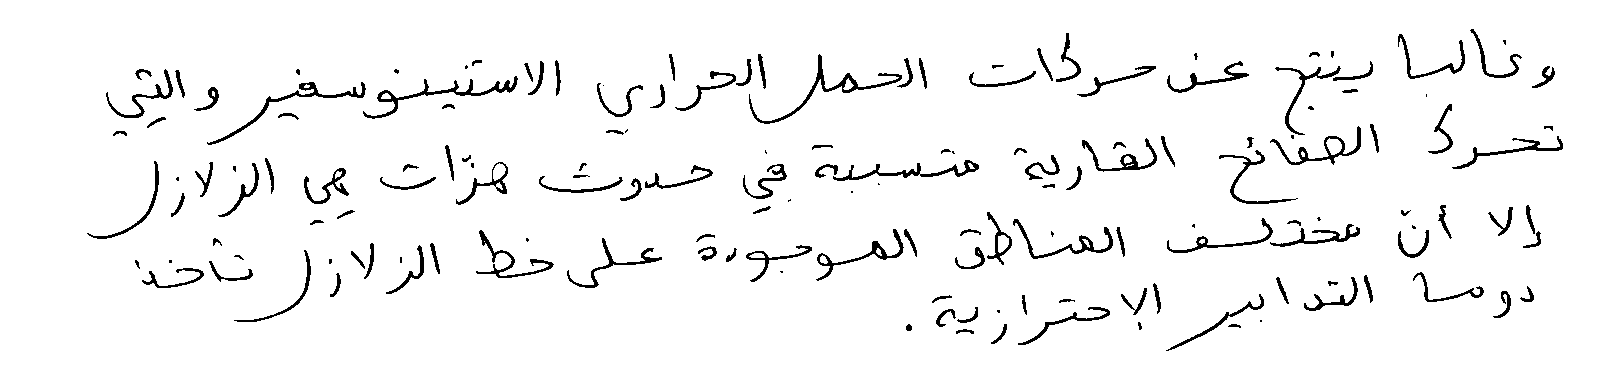 وغالبا ينتج عن حركات الحمل الحراري الاستينوسفير والتي
تحرك الصفائح القارية متسببة في حدوث هزّات هي الزلازل
إلا أنّ مختلف المناطق الموجودة على خط الزلازل تأخذ
دوما التدابير الإحترازية .